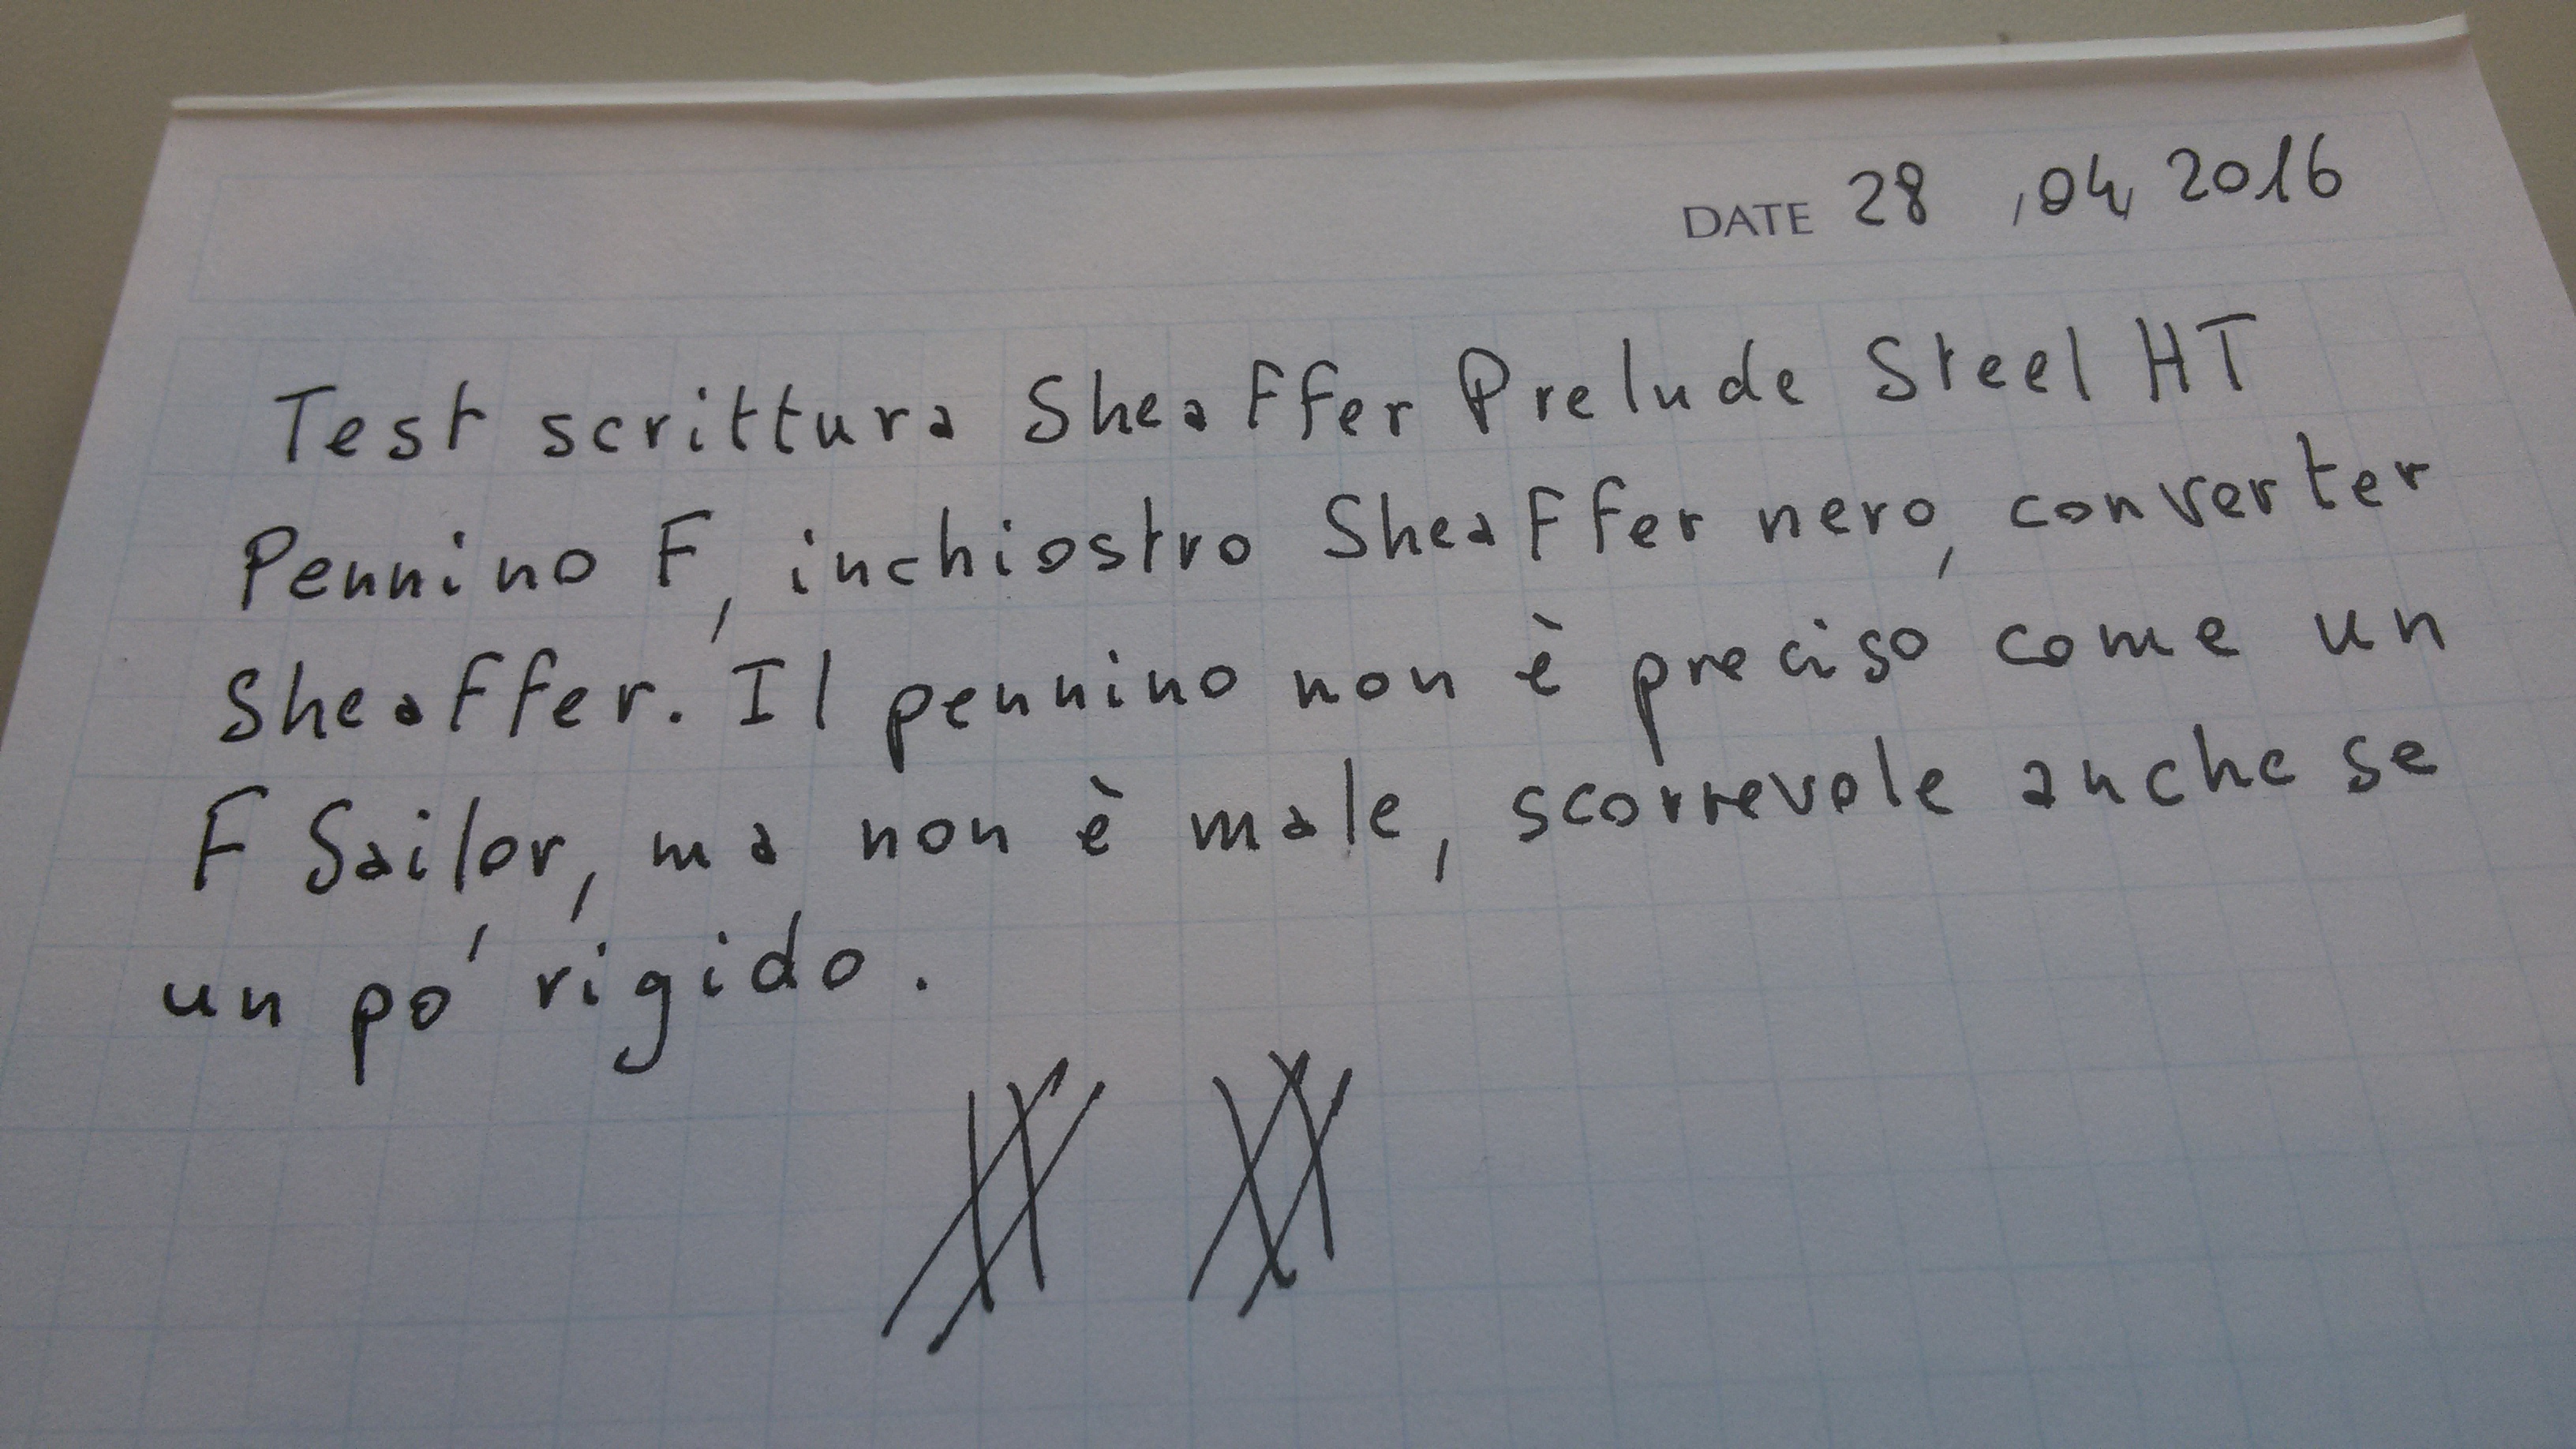 DATE 28 , 04, 2016
Test scrittura Sheaffer Prelude Steel HT
Pennino F, inchiostro Sheaffer nero, converter
Sheaffer. Il pennino non è preciso come un
F Sailor, ma non è male, scorrevole anche se
un po' rigido.